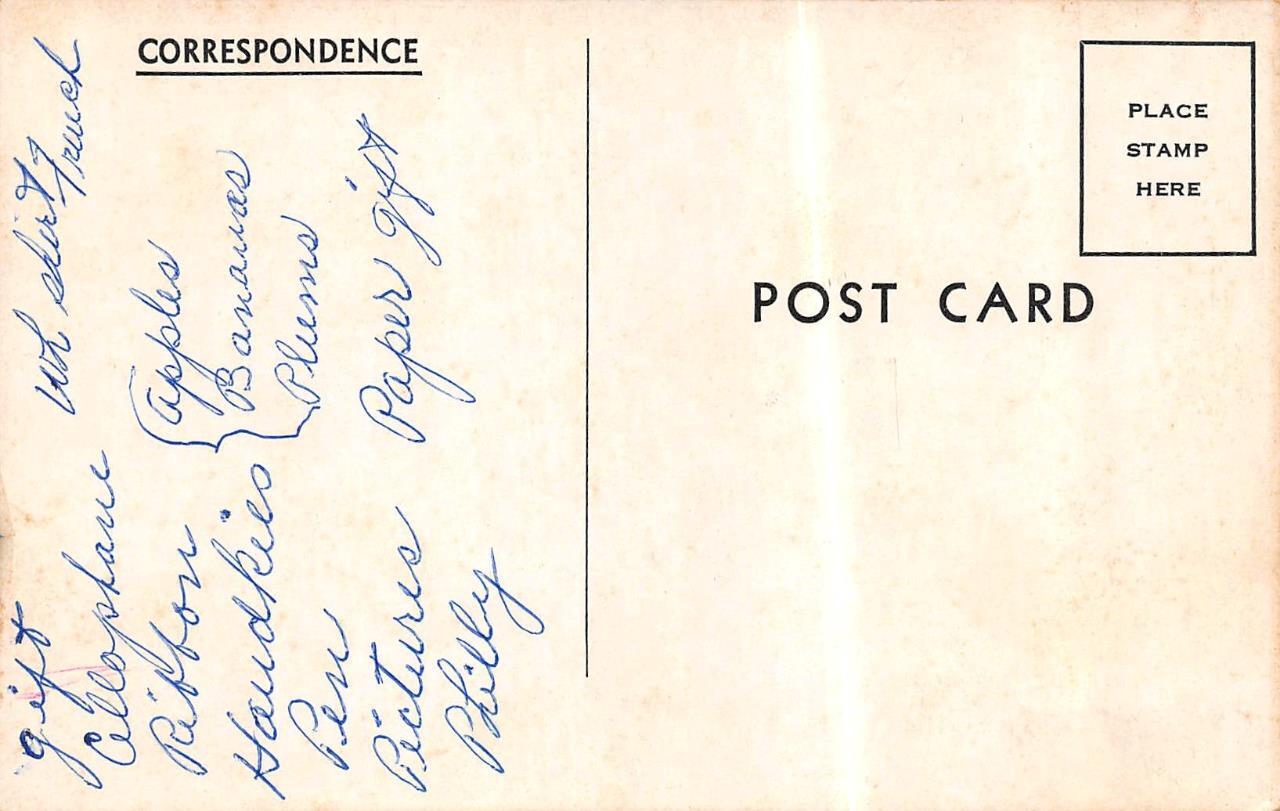 CORRESPONDENCE
PLACE
STAMP
HERE
POST CARD
gift
Cellophane
Ribbon
Handkies
Pen
Pictures
Philly
Wh skirt
Apples
Bananas
Plums
Paper gift